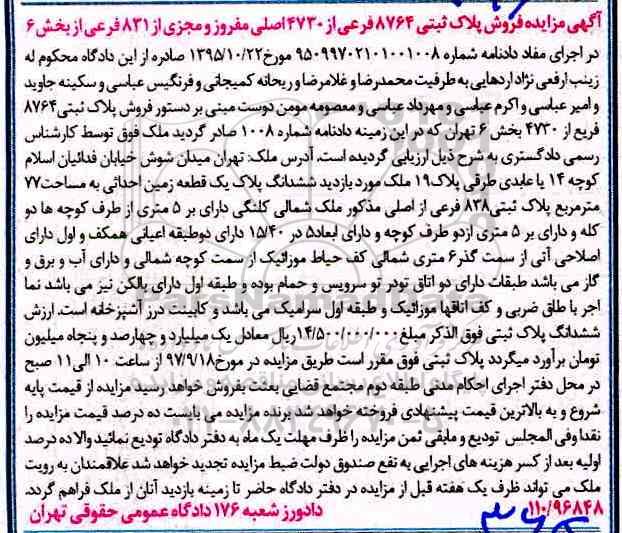 آگهی مزایده فروش پلاک ثبتی ۸۷۶۴ فرعی از ۴۷۳۰ اصلی مفروز و مجزی از ۸۳۱ فرعی از بخش ۶
در اجرای مفاد دادنامه شماره ۹۵۰۹۹۷۰۲۱۰۱۰۰۱۰۰۸ مورخ ۱۳۹۵/۱۰/۲۲ صادره از این دادگاه محکوم له
زینب ارفعی نژاد اردهایی به طرفیت محمدرضا و غلامرضا و ریحانه کمیجانی و فرنگیس عباسی و سکینه جاوید
و امیر عباسی و اکرم عباسی و مهرداد عباسی و معصومه مومن دوست مبنی بر دستور فروش پلاک ثبتی ۸۷۶۴
فریع از ۴۷۳۰ بخش ۶ تهران که در این زمینه دادنامه شماره ۱۰۰۸ صادر گردید ملک فوق توسط کارشناس
رسمی دادگستری به شرح ذیل ارزیابی گردیده است. آدرس ملک: تهران میدان شوش خیابان فدائیان اسلام
کوچه ۱۴ یا عابدی طرقی پلاک ۱۹ ملک مورد بازدید ششدانگ پلاک یک قطعه زمین احداثی به مساحت ۷۷
مترمربع پلاک ثبتی ۸۳۸ فرعی از اصلی مذکور ملک شمالی کلنگی دارای بر ۵ متری از طرف کوچه ها دو
کله و دارای بر ۵ متری ازدو طرف کوچه و دارای ابعاد ۵ در ۱۵/۴۰ دارای دوطبقه اعیانی همکف و اول دارای
اصلاحی آتی از سمت گذر ۶ متری شمالی کف حیاط موزائیک از سمت کوچه شمالی و دارای آب و برق و
گاز می باشد طبقات دارای دو اتاق تودر تو سرویس و حمام بوده و طبقه اول دارای بالکن نیز می باشد نما
اجر با طلق ضربی و کف اتاقها موزائیک و طبقه اول سرامیک می باشد و کابینت درز آشپزخانه است. ارزش
ششدانگ پلاک ثبتی فوق الذکر مبلغ ۱۴/۵۰۰/۰۰۰/۰۰۰ ریال معادل یک میلیارد و چهارصد و پنجاه میلیون
تومان برآورد میگردد پلاک ثبتی فوق مقرر است طریق مزایده در مورخ ۹۷/۹/۱۸ از ساعت ۱۰ الی ۱۱ صبح
در محل دفتر اجرای احکام مدنی طبقه دوم مجتمع قضایی بعثت بفروش خواهد رسید مزایده از قیمت پایه
شروع و به بالاترین قیمت پیشنهادی فروخته خواهد شد برنده مزایده می بایست ده درصد قیمت مزایده را
نقدا وفی المجلس تودیع و مابقی ثمن مزایده را ظرف مهلت یک ماه به دفتر دادگاه تودیع نمائید والا ده درصد
اولیه بعد از کسر هزینه های اجرایی به تفع صندوق دولت ضبط مزایده تجدید خواهد شد علاقمندان به رویت
ملک می تواند ظرف یک هفته قبل از مزایده در دفتر دادگاه حاضر تا زمینه بازدید آنان از ملک فراهم گردد.
۱۱۰/۹۶۸۴۸ دادورز شعبه ۱۷۶ دادگاه عمومی حقوقی تهران